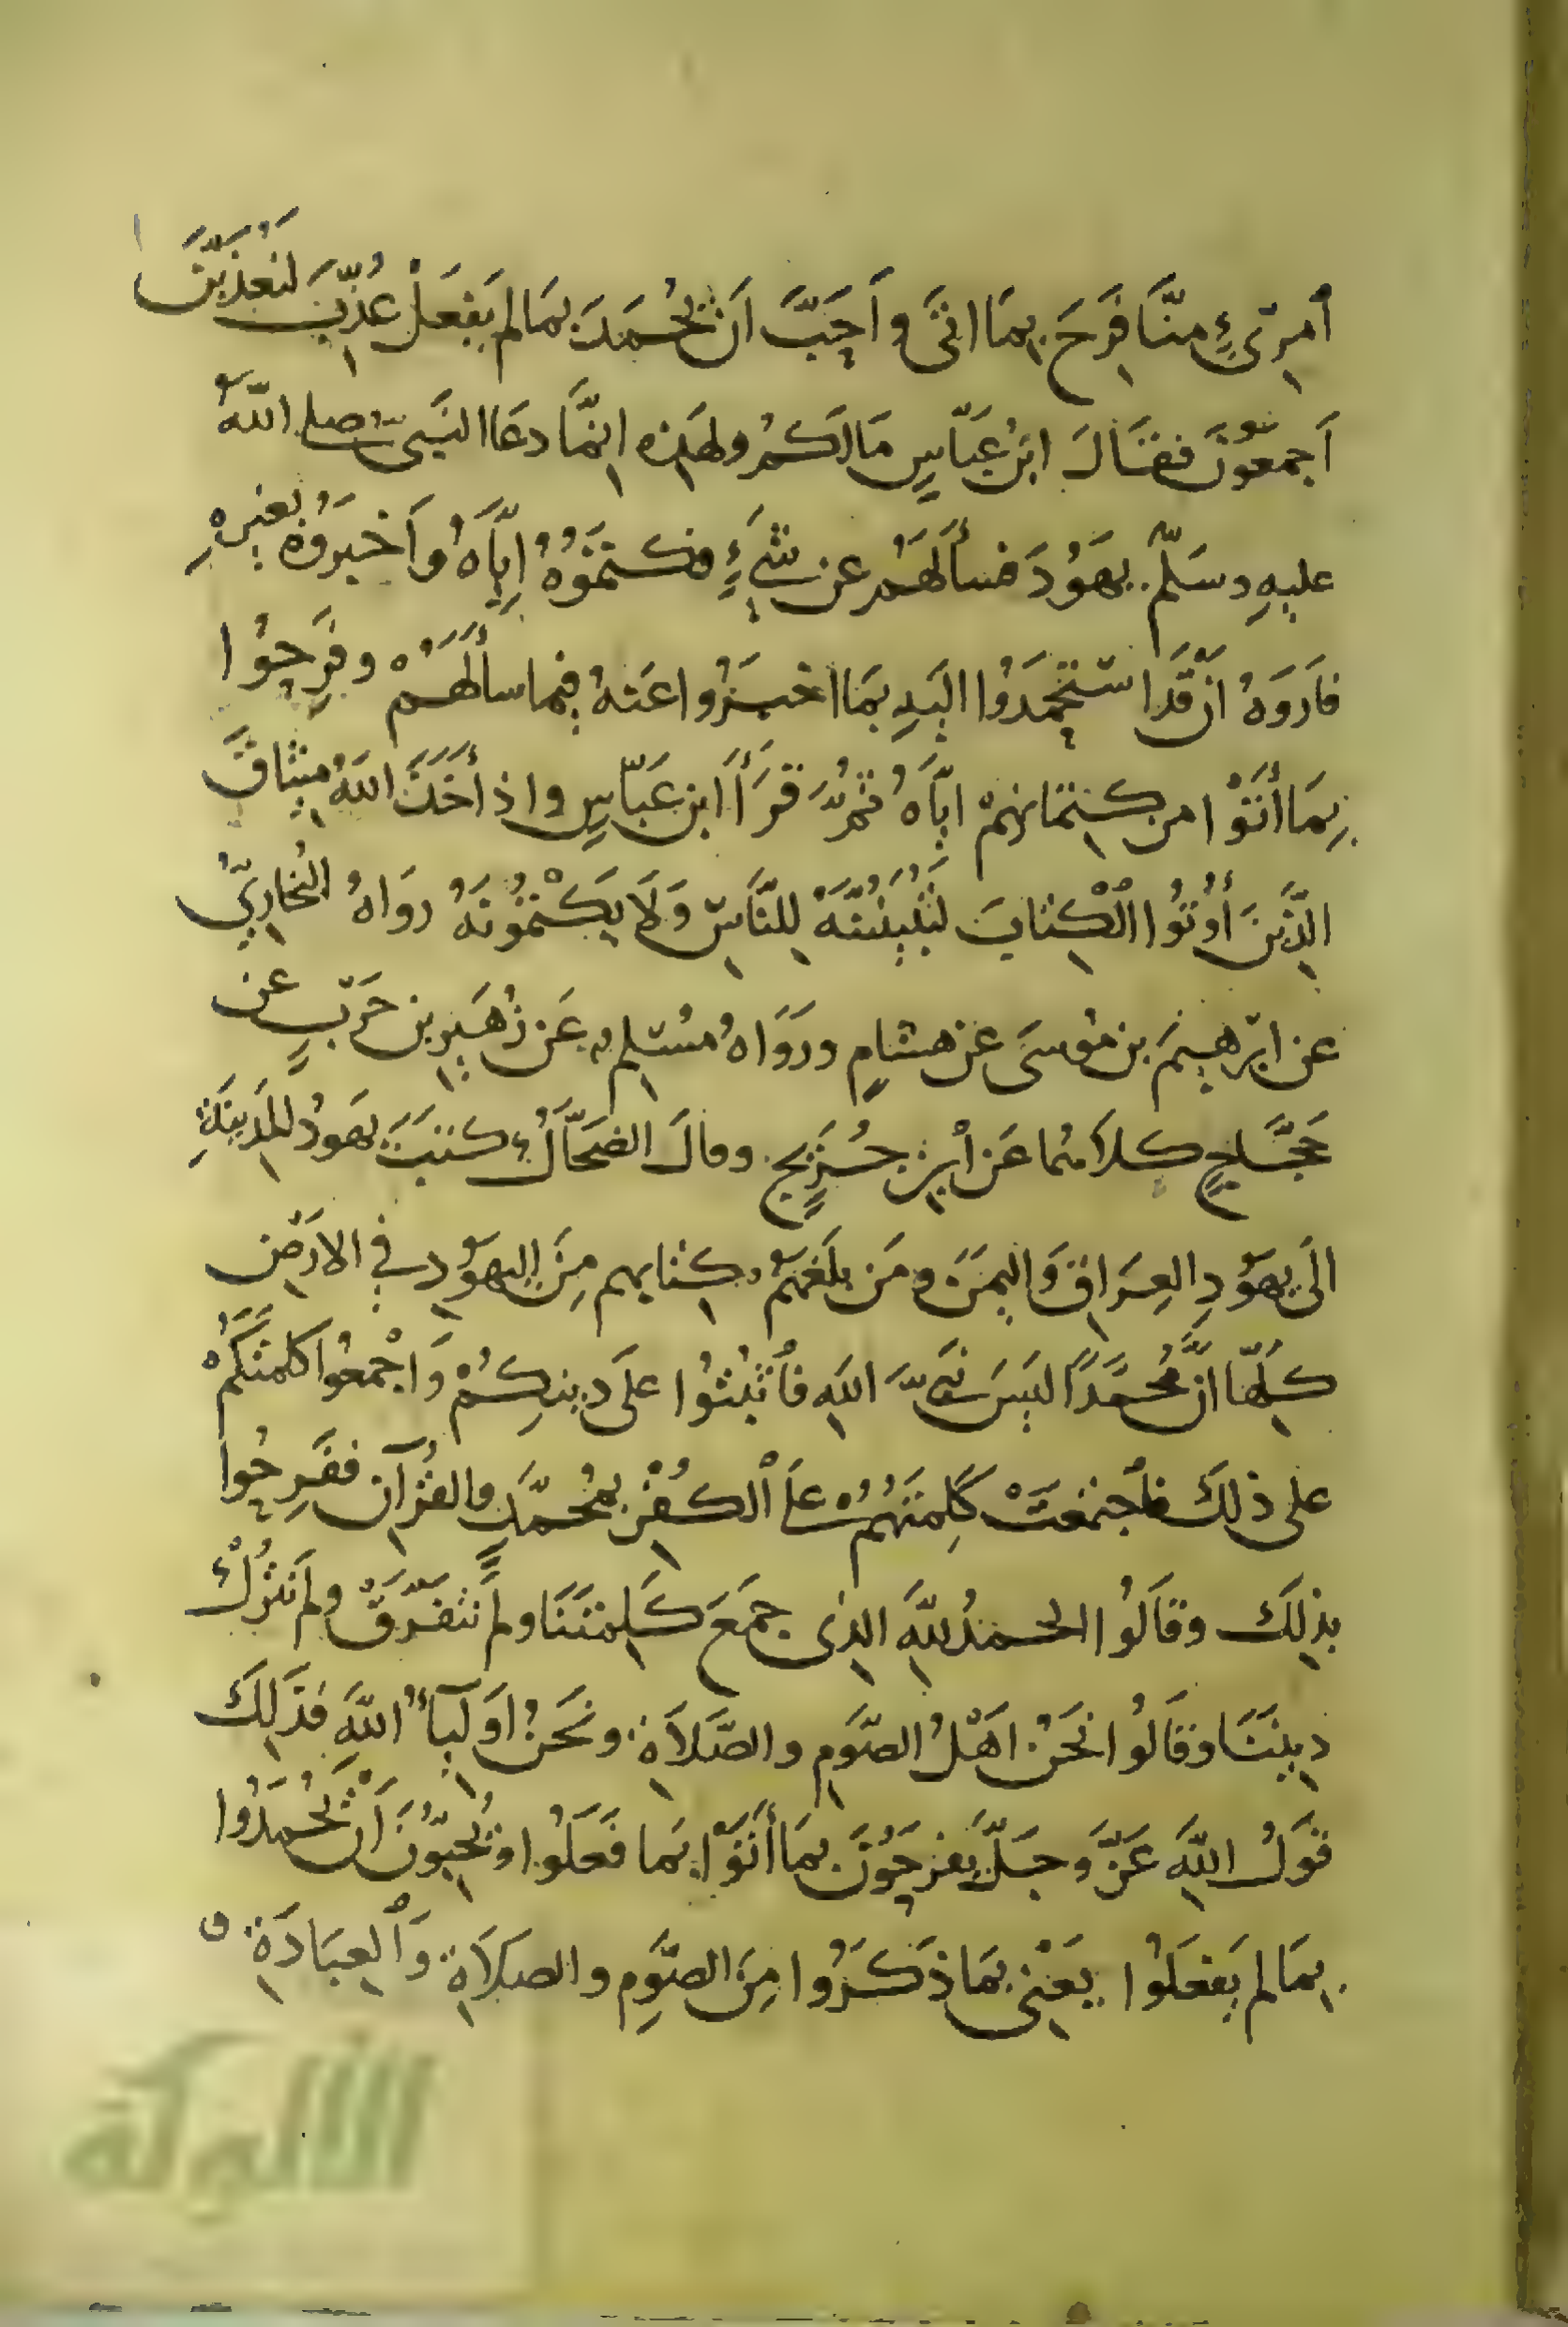 أمرئٍ منّا فَرِحَ بما اتى وأحَبَّ أن يُحْمَدَ بما لم يَفعل عُذِّبَ لنعذبنَّ
أجمعون فقال ابن عبّاسٍ ما لكم ولهذه انما دعا النبى صلى الله
عليه وسلّم يهودَ فسألهم عن شىءٍ فكتموهُ إيّاهُ وأخبروه بغيره
فأروهُ أن قد استحمدوا اليه بما اخبروا عنه فيما سألهم وفرحوا
بما أتوا من كتمانهم ايّاهُ ثم قرأ ابن عبّاسٍ واذ أخذ اللهُ ميثاق
الذين أوتوا الكتاب لتبيننه للناس ولا يكتمونه رواهُ البخارىّ
عن ابرهيم بن موسى عن هشامٍ ورواهُ مسلم عن زهير بن حربٍ عن
حجاجٍ كلاهما عن أبن جريج وقال الضحاك كتبت يهود المدينة
الى يهود العراق واليمن ومن بلغهم كتابهم من اليهود في الارض
كلها انّ محمدًا ليس نبىّ الله فأثبتوا على دينكم وأجمعوا كلمتكم
على ذلك فأجتمعت كلمتهم على الكفر بمحمدٍ والقرآن ففرحوا
بذلك وقالوا الحمد لله الذى جمع كلمتنا ولم نتفرق ولم نترك
ديننا وقالوا نحن اهل الصوم والصلاة ونحن اولياءُ الله فذلك
قول الله عزّ وجلّ يفرحون بما أتوا بما فعلوا ويحبّون أن يحمدوا
بما لم يفعلوا يعنى بما ذكروا من الصوم والصلاة والعبادة
الألوكة